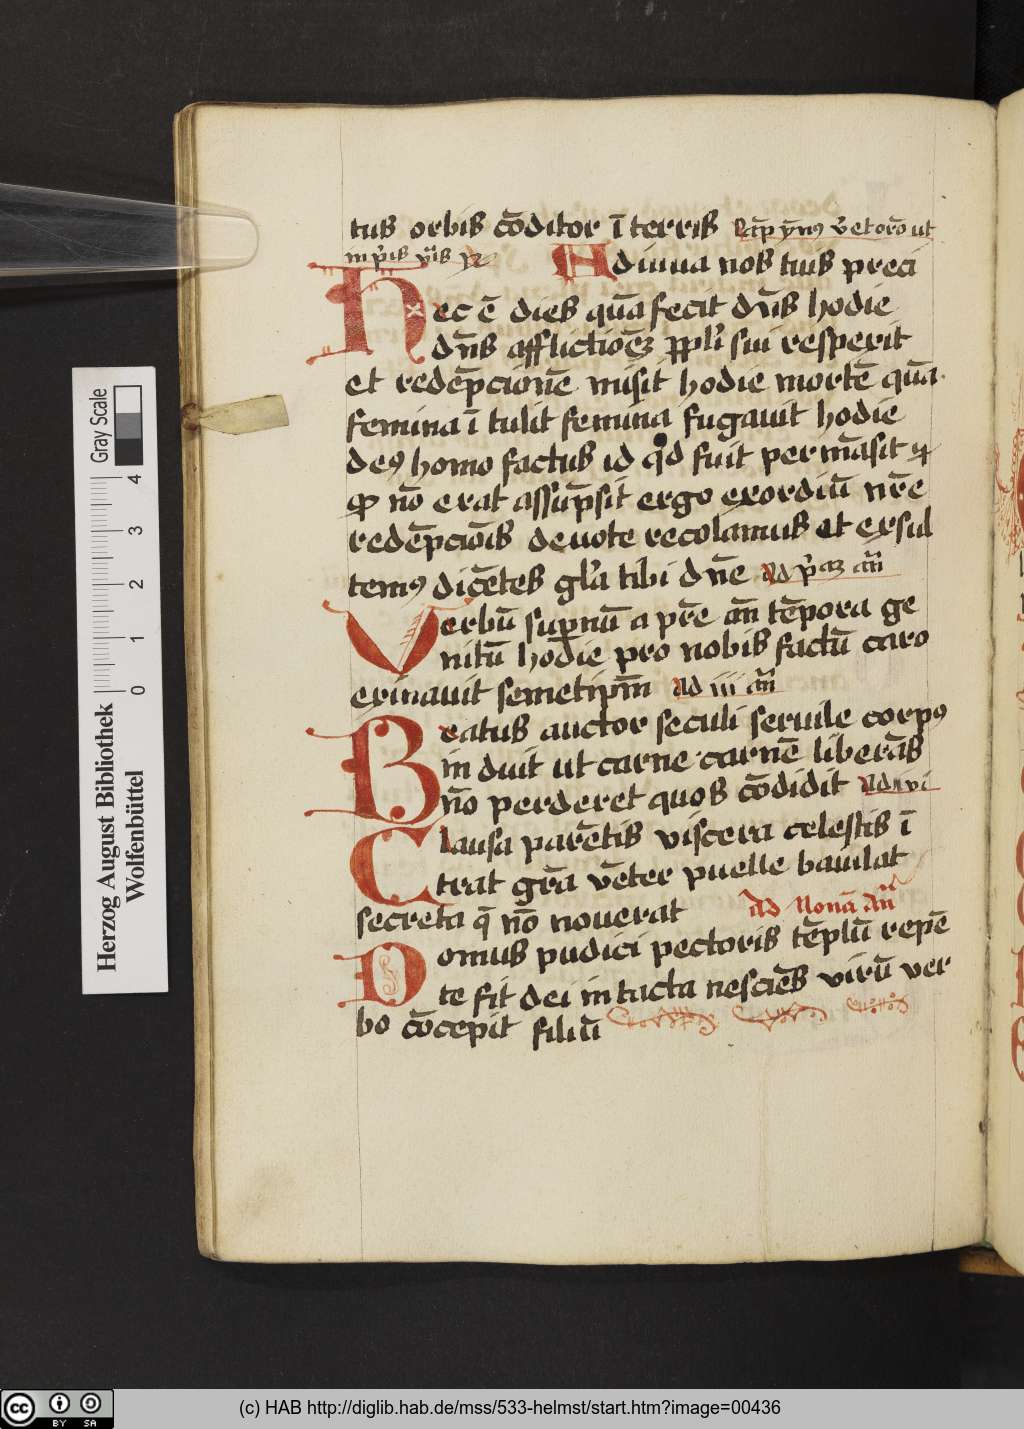 tus orbis cōditor ī terris Cap ymꝰ v̄ et orō ut
in p̄is
Adiuua nos tuis preci
Hec ē dies quā fecit dn̄s hodie
dn̄s afflictioēꝫ ꝓpl'i sui respexit
et redēpcionē misit hodie mortē quā
femina ī tulit femina fugauit hodie
deꝰ homo factus id qd fuit permāsit ⁊
qꝫ nō erat assūpsit ergo exordiū nr̄e
redēpciōis deuote recolamus et exsul
temꝰ dicētes gl'a tibi dn̄e Ad p̄aꝫ an̄
Verbū supnū a pr̄e an̄ tēpora ge
nitū hodie pro nobis factū caro
exinauit semetipm̄ ad iii an̄
Beatus auctor seculi seruile corpꝰ
in duit ut carne carnē liberās
nō perderet quos cōdidit Ad vi
Clausa parētis viscera celestis ī
trat gr̄a vēter puelle baiulat
secreta q̄ nō nouerat ad Nonā an̄
Domus pudici pectoris tēplū repē
te fit dei in tacta nesciēs virū ver
bo cōcepit filiū
Herzog August Bibliothek
Wolfenbüttel
0 1 2 3 4
Gray Scale
cc BY SA
(c) HAB http://diglib.hab.de/mss/533-helmst/start.htm?image=00436